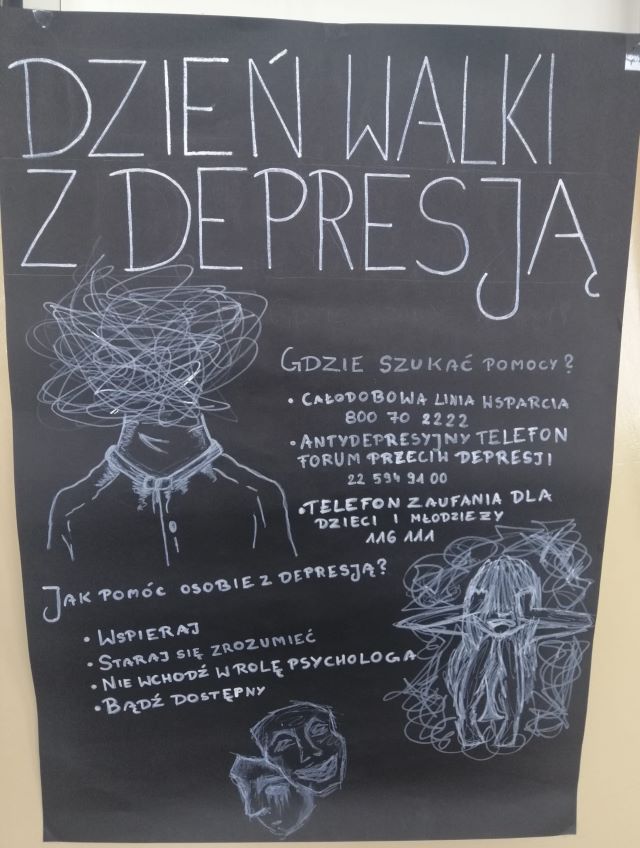 DZIEŃ WALKI
Z DEPRESJĄ
GDZIE SZUKAĆ POMOCY?
• CAŁODOBOWA LINIA WSPARCIA
800 70 2222
• ANTYDEPRESYJNY TELEFON
FORUM PRZECIW DEPRESJI
22 594 91 00
• TELEFON ZAUFANIA DLA
DZIECI I MŁODZIEZY
116 111
JAK POMÓC OSOBIE Z DEPRESJĄ?
• WSPIERAJ
• STARAJ SIĘ ZROZUMIEĆ
• NIE WCHODŹ W ROLĘ PSYCHOLOGA
• BĄDŹ DOSTĘPNY